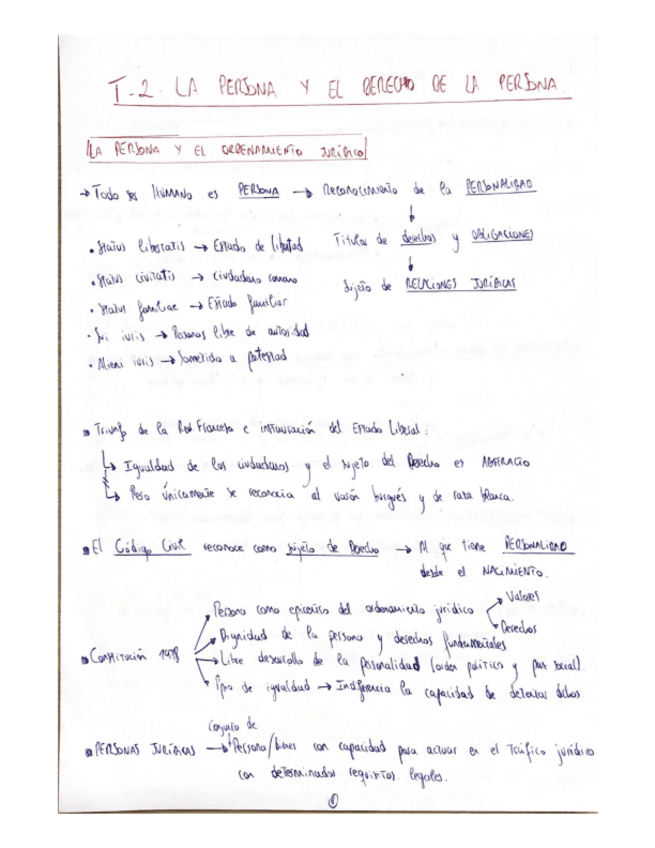 T-2. LA PERSONA Y EL DERECHO DE LA PERSONA.
LA PERSONA Y EL ORDENAMIENTO JURÍDICO
→ Todo ser HUMANO es PERSONA → Reconocimiento de la PERSONALIDAD
↓
Titular de derechos y OBLIGACIONES
↓
Sujeto de RELACIONES JURÍDICAS
• Status libertatis → Estado de libertad
• Status civitatis → ciudadano romano
• Status familiae → Estado familiar
• Sui iuris → Personas libre de autoridad
• Alieni iuris → Sometido a potestad
Triunfo de la Rev Francesa e instauración del Estado Liberal:
↳ Igualdad de los ciudadanos y el sujeto del Derecho es ABSTRACTO
↳ Pero únicamente se reconocía al varón burgués y de raza blanca.
El Código Civil reconoce como sujeto de Derecho → Al que tiene PERSONALIDAD
desde el NACIMIENTO.
Constitución 1978
→ Persona como epicentro del ordenamiento jurídico
Valores
Derechos
→ Dignidad de la persona y derechos fundamentales
→ Libre desarrollo de la personalidad (orden político y paz social).
→ Ppio de igualdad → la capacidad de
PERSONAS JURÍDICAS → conjunto de
Persona/bienes con capacidad para actuar en el tráfico jurídico
con determinados requisitos legales.